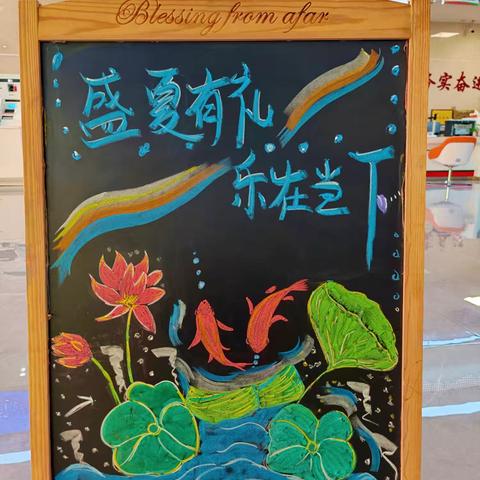 Blessing from afar
盛夏有礼
乐在当下
务实奋进